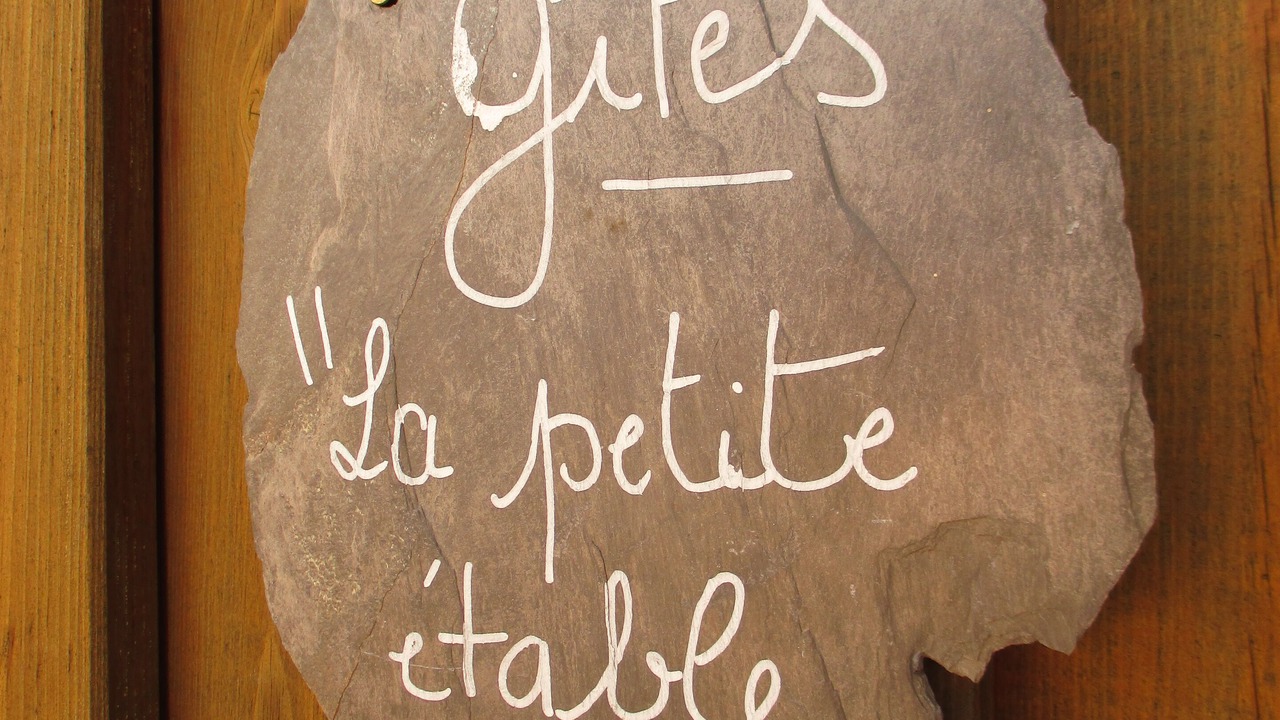 Gites
"La petite
étable